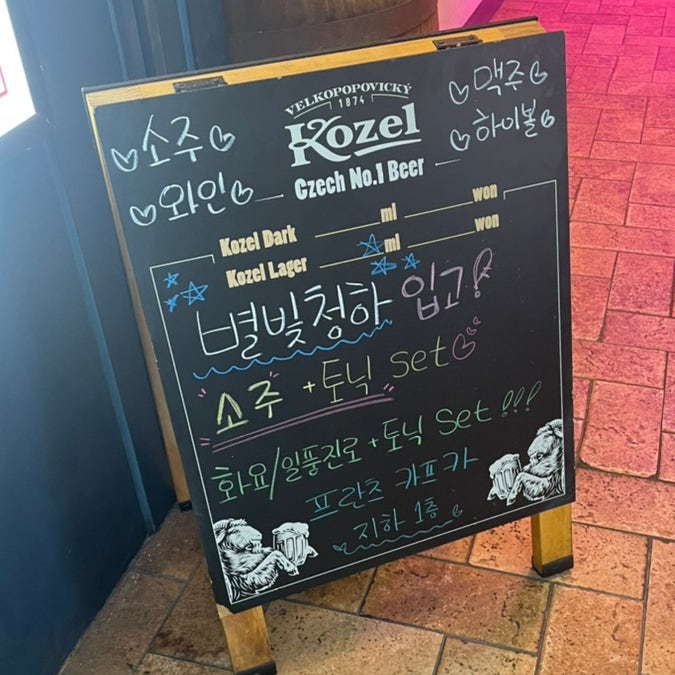 VELKOPOPOVICKÝ
1874
Kozel
Czech No.1 Beer
소주
와인
맥주
하이볼
Kozel Dark ml won
Kozel Lager ml won
별빛청하 입고!
소주 + 토닉 set
화요/일품진로 + 토닉 set !!!
프란츠 카프카
지하 1층